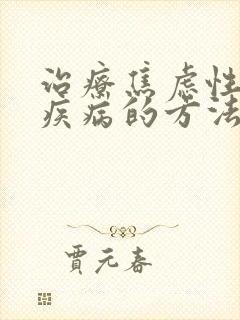 治療焦虑性
疾病的方法
賈元春